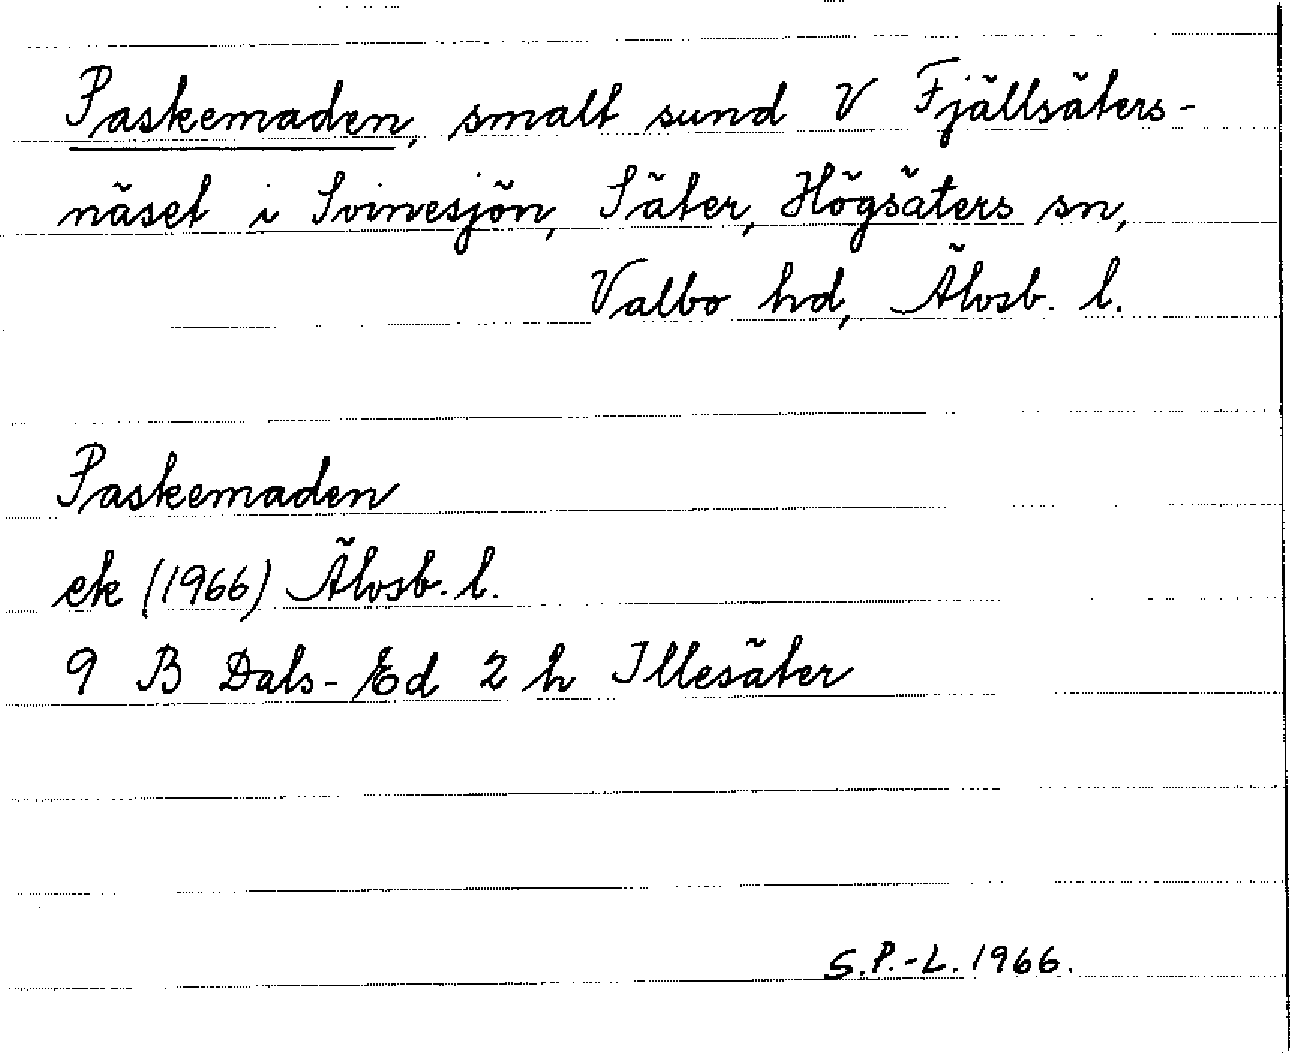 Paskemaden, smalt sund V Fjällsäters-
näset i Svinesjön, Säter, Högsäters sn,
Valbo hd, Älvsb. l.
Paskemaden
ek (1966) Älvsb. l.
9 B Dals-Ed 2 h Illesäter
S.P.-L. 1966.